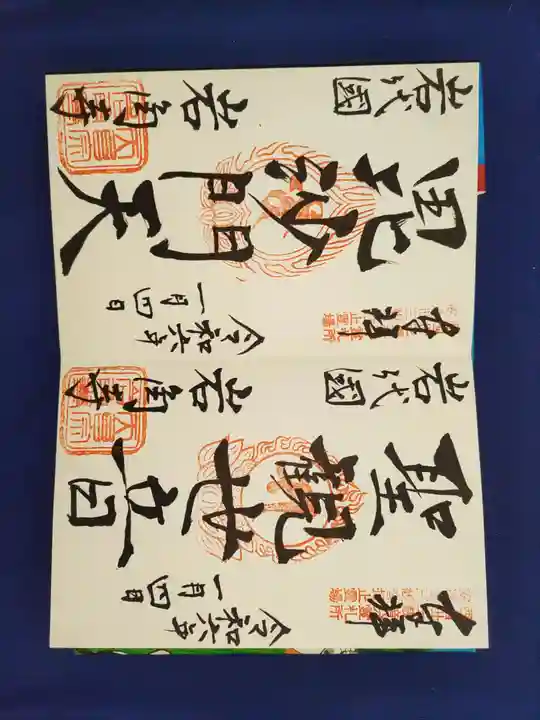 奉拝
令和六年
一月四日
聖観世音
岩代國
岩角寺
奉拝
令和六年
一月四日
毘沙門天
岩代國
岩角寺